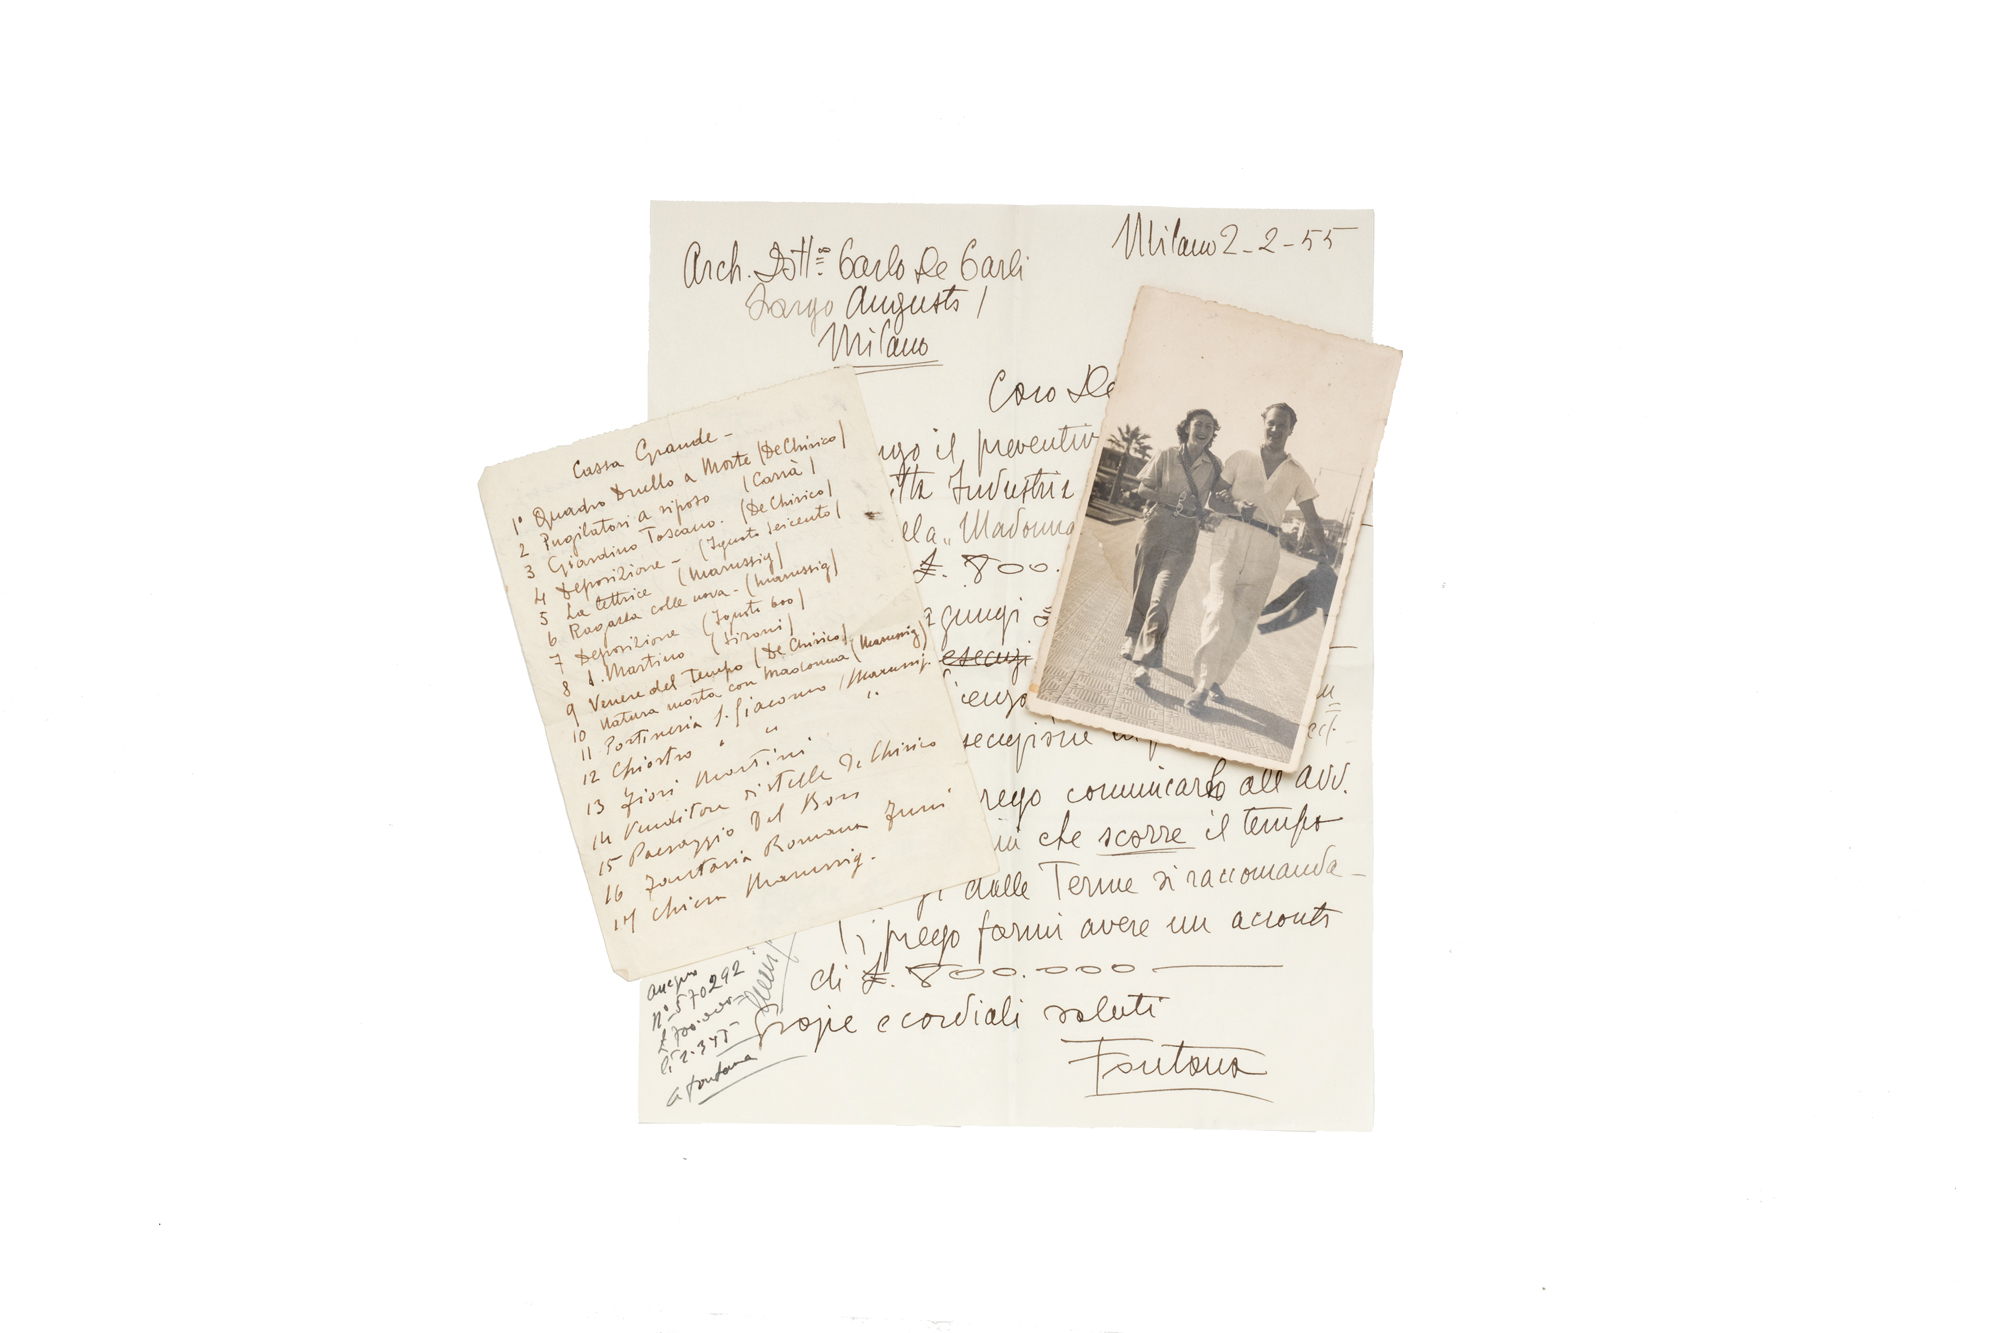 Milano 2-2-55
Arch. Dott. Carlo De Carli
Largo Augusto 1
Milano
Caro De
il preventiv
Industria
"Madonna
£. 800.
che scorre il tempo
dalle Terme si raccomanda-
prego farmi avere un acconto
di £. 800.000
grazie e cordiali saluti
Fontana
rego comunicarlo all'avv.
Cassa Grande -
1° Quadro Duello a Morte (De Chirico)
2 Pugilatori a riposo (Carrà)
3 Giardino Toscano. (De Chirico)
4 Deposizione - (Ignoto seicento)
5 La lettrice (Marussig)
6 Ragazza colle uova - (Marussig)
7 Deposizione (Ignoto 600)
8 S. Martino (Sironi)
9 Venere del Tempo (De Chirico)
10 Natura morta con Madonna (Marussig)
11 Portineria S. Giacomo (Marussig.
12 Chiostro " " "
13 Fiori Martini
14 Venditore di stelle De Chirico
15 Paesaggio Del Bon
16 Fantasia Romana Funi
17 Chiesa Marussig.
N° 570292
a Fontana